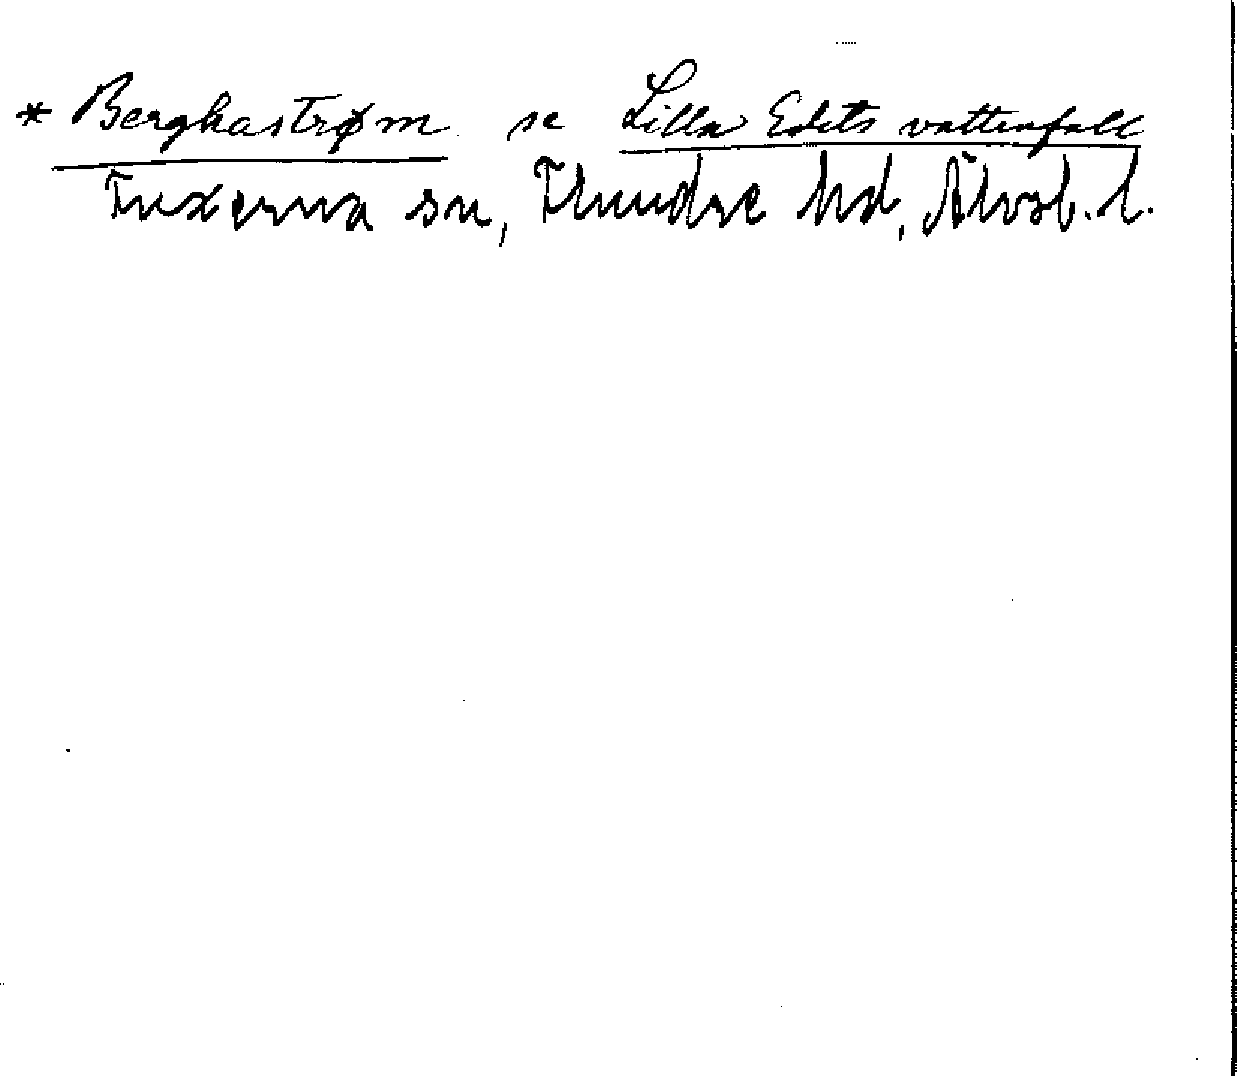 * Berghastrøm se Lilla Edets vattenfall
Fuxerna sn, Flundre hd, Älvsb. l.